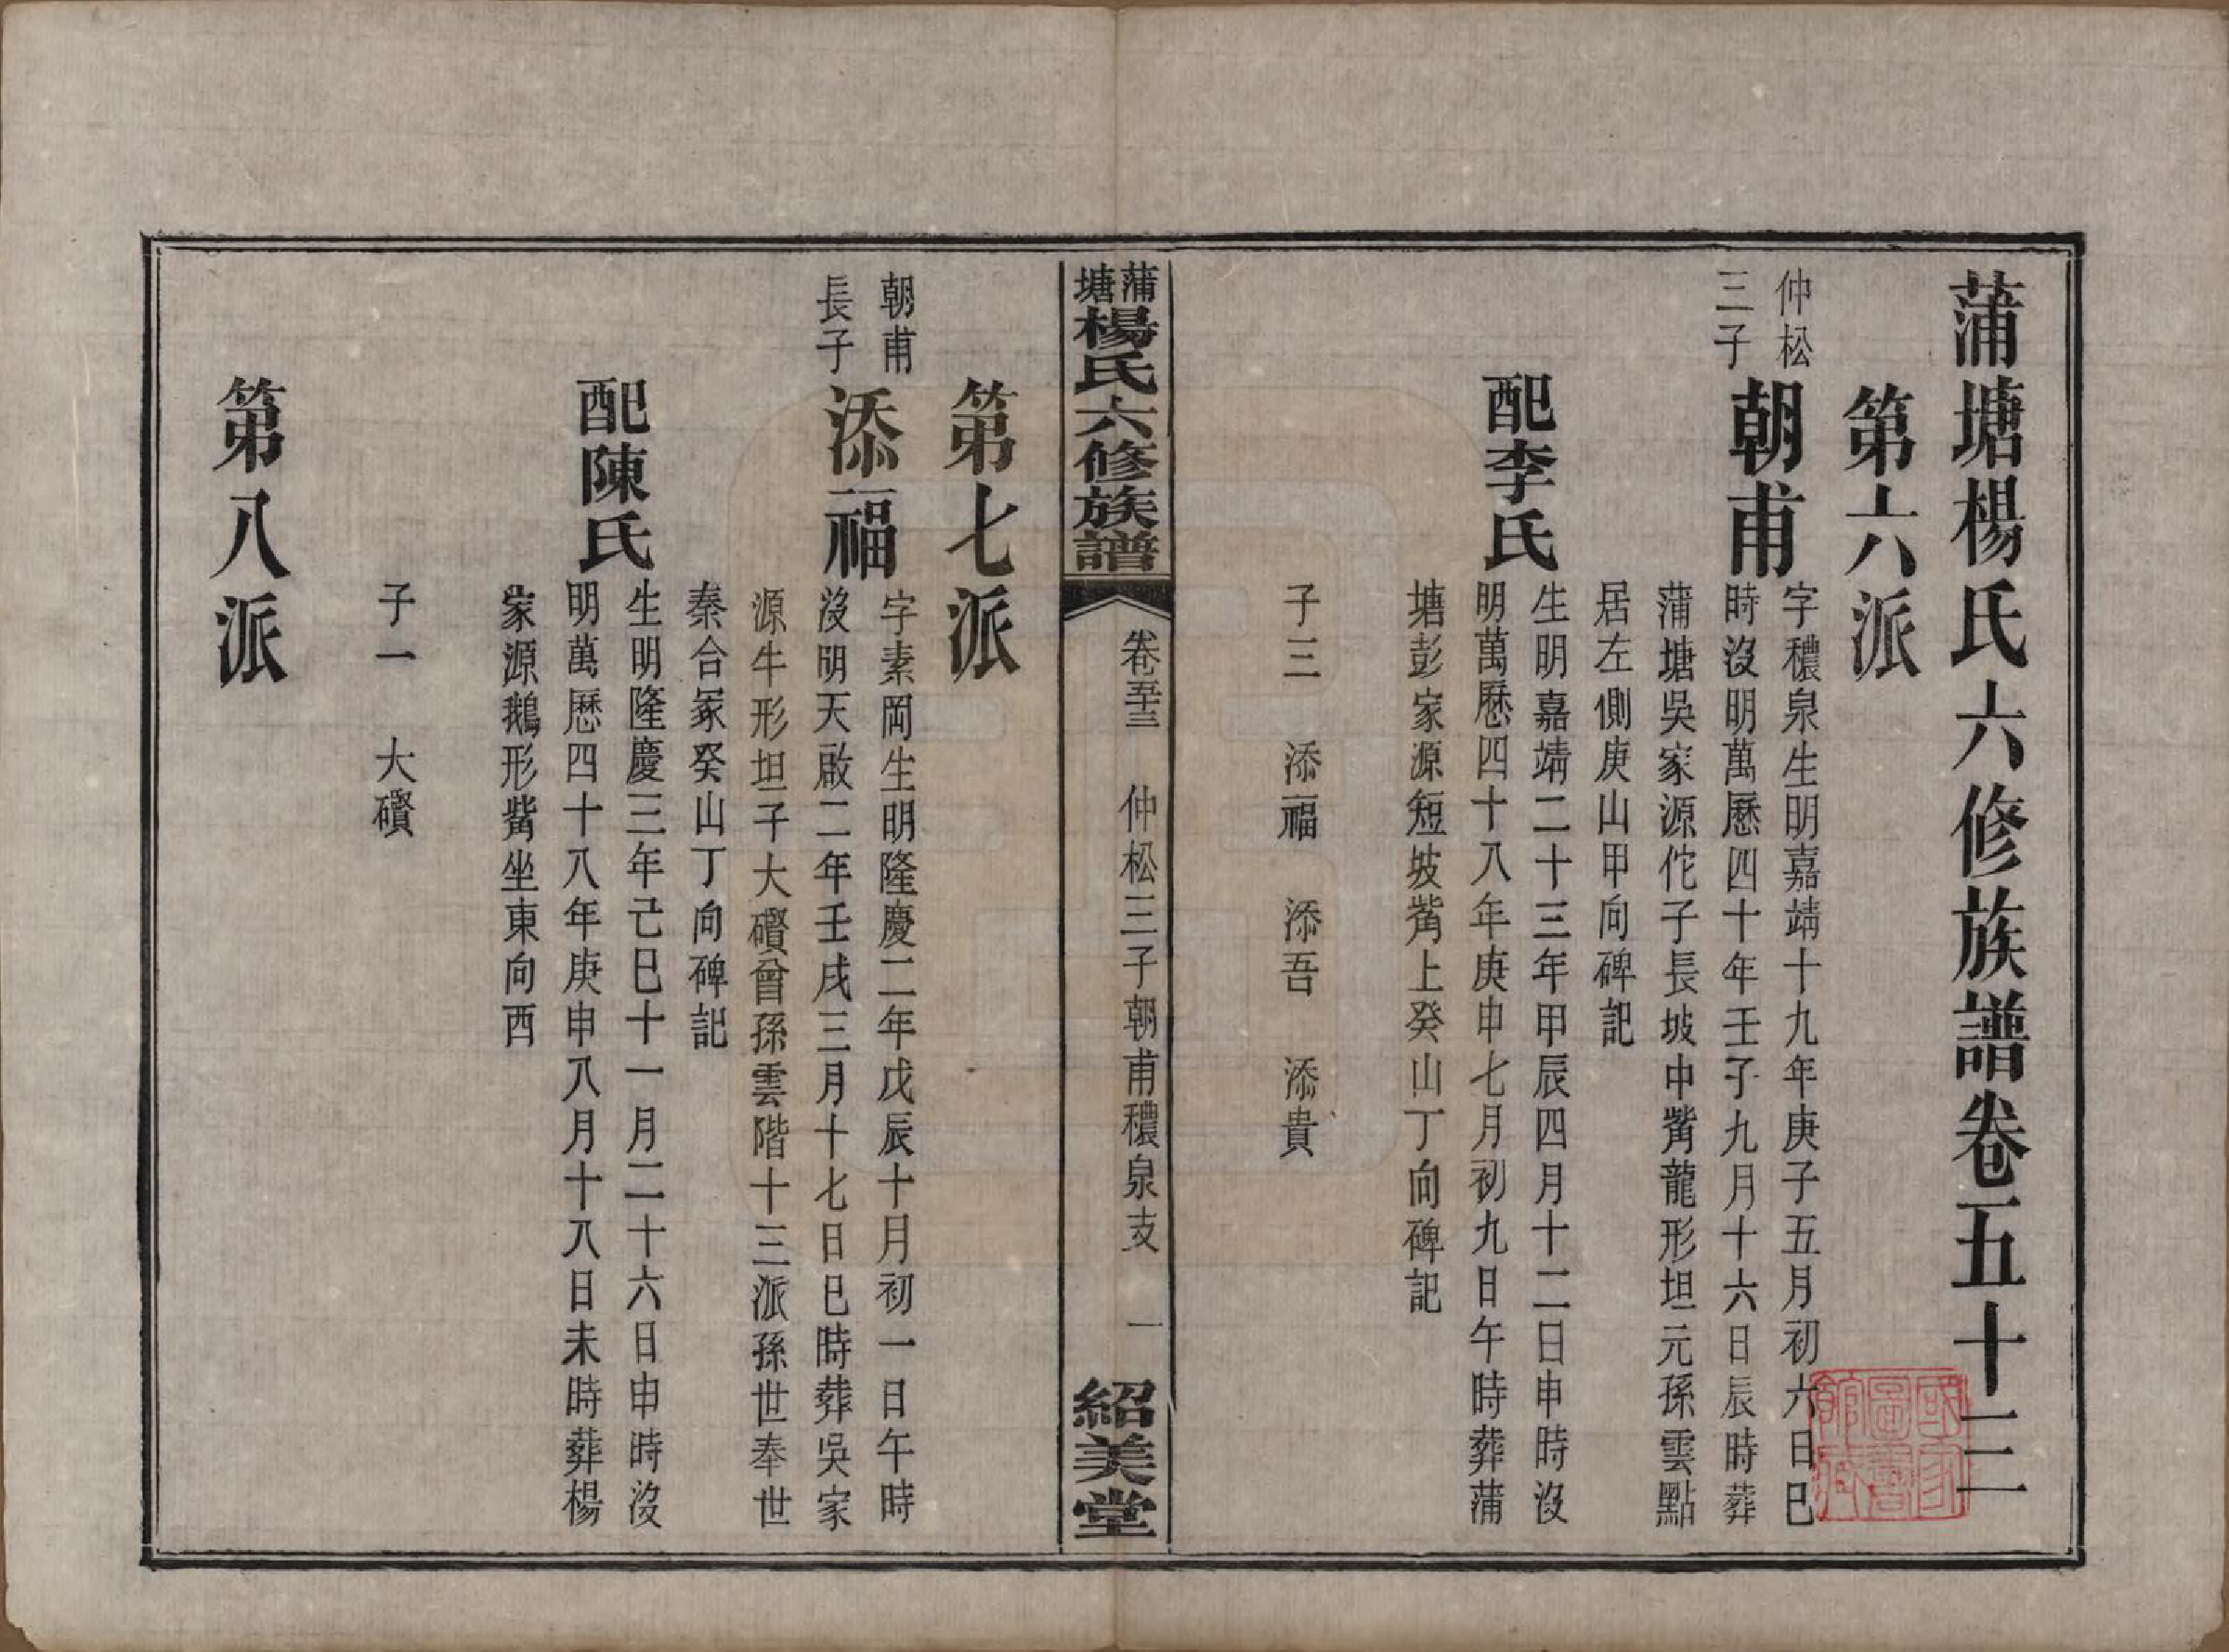 蒲塘楊氏六修族譜卷五十三
第六派
仲松
三子
朝甫
字穠泉生明嘉靖十九年庚子五月初六日巳
時沒明萬曆四十年壬子九月十六日辰時葬
蒲塘吳家源佗子長坡中觜龍形坦元孫雲點
居左側庚山甲向碑記
配李氏
生明嘉靖二十三年甲辰四月十二日申時沒
明萬曆四十八年庚申七月初九日午時葬蒲
塘彭家源短坡觜上癸山丁向碑記
子三 添福 添吾 添貴
蒲塘楊氏六修族譜
卷五十三 仲松三子朝甫穠泉支 一
紹美堂
第七派
朝甫
長子
添福
字素岡生明隆慶二年戊辰十月初一日午時
沒明天啟二年壬戌三月十七日巳時葬吳家
源牛形坦子大礩曾孫雲階十三派孫世奉世
秦合冢癸山丁向碑記
配陳氏
生明隆慶三年己巳十一月二十六日申時沒
明萬曆四十八年庚申八月十八日未時葬楊
家源鵝形觜坐東向西
子一 大礩
第八派
國家圖書館藏